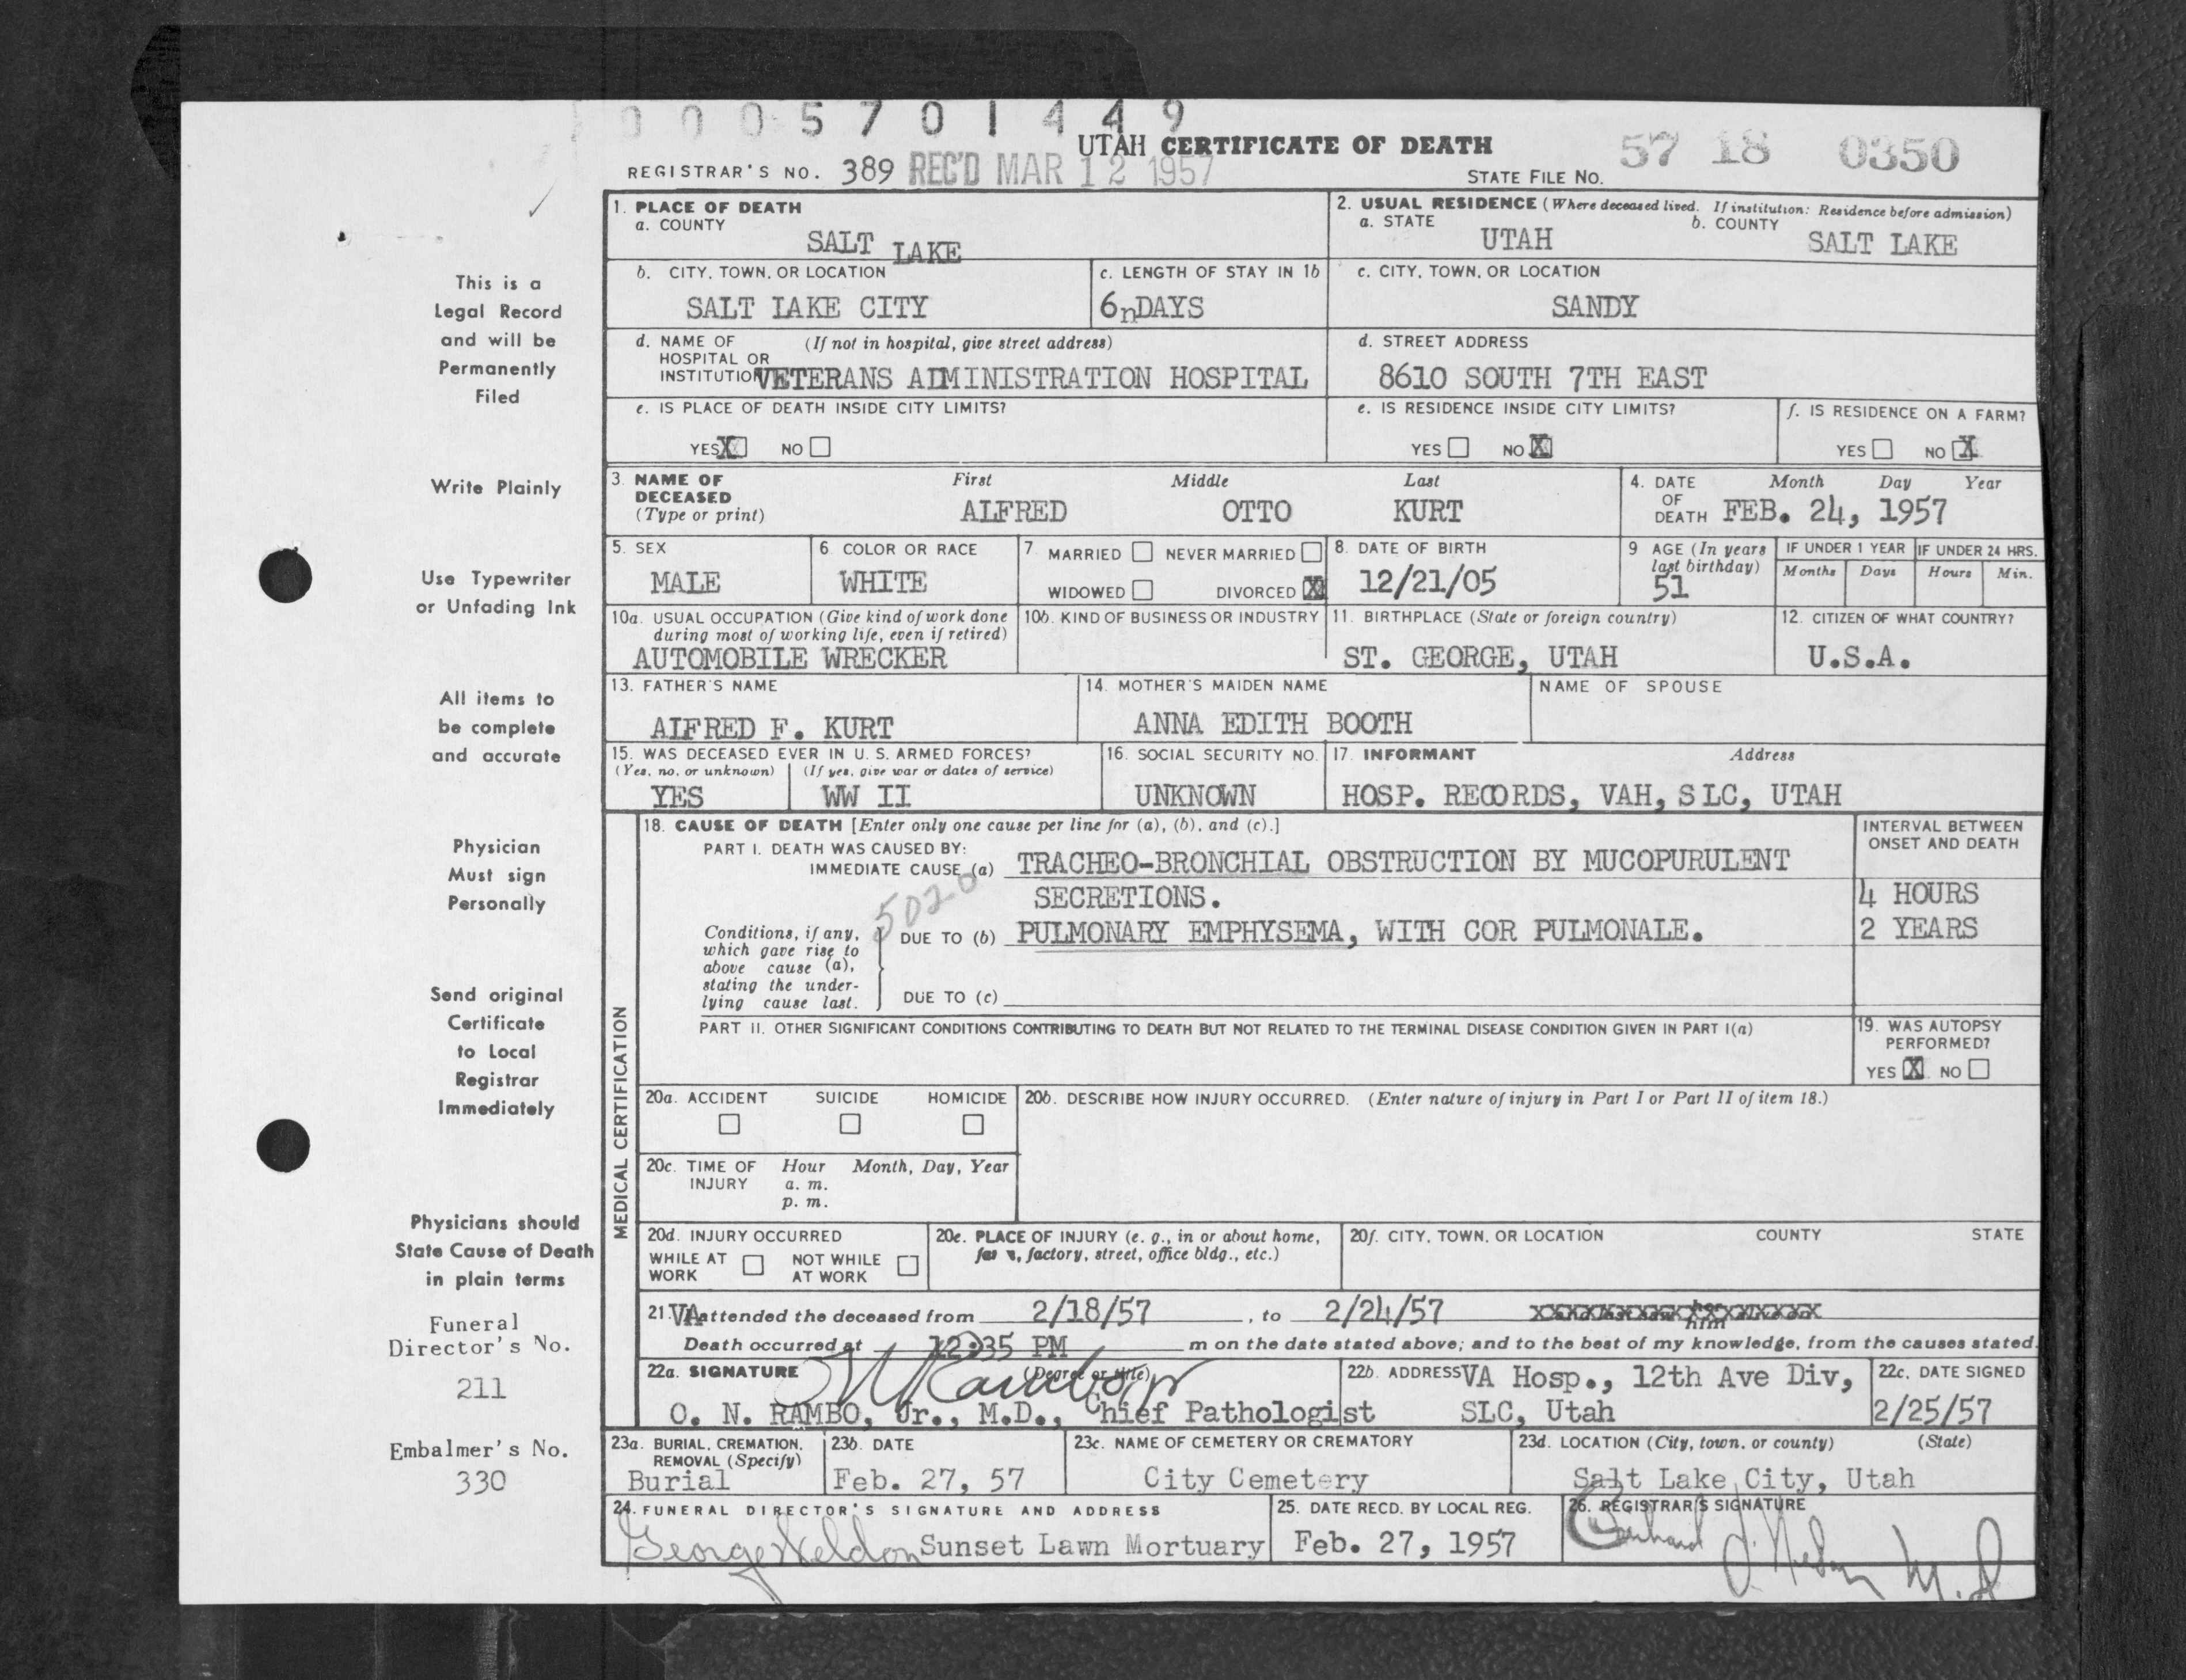 0 0 0 5 7 0 1 4 4 9
UTAH CERTIFICATE OF DEATH
57 18 0350
REGISTRAR'S NO. 389 REC'D MAR 12 1957
STATE FILE NO.
1. PLACE OF DEATH
a. COUNTY
SALT LAKE
2. USUAL RESIDENCE (Where deceased lived. If institution: Residence before admission)
a. STATE
UTAH
b. COUNTY
SALT LAKE
b. CITY, TOWN, OR LOCATION
SALT LAKE CITY
c. LENGTH OF STAY IN 1b
6nDAYS
c. CITY, TOWN, OR LOCATION
SANDY
d. NAME OF (If not in hospital, give street address)
HOSPITAL OR
INSTITUTION VETERANS ADMINISTRATION HOSPITAL
d. STREET ADDRESS
8610 SOUTH 7TH EAST
e. IS PLACE OF DEATH INSIDE CITY LIMITS?
YES X NO
e. IS RESIDENCE INSIDE CITY LIMITS?
YES NO X
f. IS RESIDENCE ON A FARM?
YES NO X
3. NAME OF DECEASED (Type or print)
First Middle Last
ALFRED OTTO KURT
4. DATE OF DEATH
Month Day Year
FEB. 24, 1957
5. SEX
MALE
6. COLOR OR RACE
WHITE
7. MARRIED NEVER MARRIED
WIDOWED DIVORCED X
8. DATE OF BIRTH
12/21/05
9 AGE (In years last birthday)
51
IF UNDER 1 YEAR
Months Days
IF UNDER 24 HRS.
Hours Min.
10a. USUAL OCCUPATION (Give kind of work done
during most of working life, even if retired)
AUTOMOBILE WRECKER
10b. KIND OF BUSINESS OR INDUSTRY
11. BIRTHPLACE (State or foreign country)
ST. GEORGE, UTAH
12. CITIZEN OF WHAT COUNTRY?
U.S.A.
13. FATHER'S NAME
ALFRED F. KURT
14. MOTHER'S MAIDEN NAME
ANNA EDITH BOOTH
NAME OF SPOUSE
15. WAS DECEASED EVER IN U. S. ARMED FORCES?
(Yes, no, or unknown) (If yes, give war or dates of service)
YES WW II
16. SOCIAL SECURITY NO.
UNKNOWN
17. INFORMANT Address
HOSP. RECORDS, VAH, SLC, UTAH
MEDICAL CERTIFICATION
18. CAUSE OF DEATH [Enter only one cause per line for (a), (b), and (c).]
INTERVAL BETWEEN
ONSET AND DEATH
PART I. DEATH WAS CAUSED BY:
IMMEDIATE CAUSE (a) TRACHEO-BRONCHIAL OBSTRUCTION BY MUCOPURULENT
SECRETIONS.
4 HOURS
5020
Conditions, if any,
which gave rise to
above cause (a),
stating the under-
lying cause last.
DUE TO (b) PULMONARY EMPHYSEMA, WITH COR PULMONALE.
2 YEARS
DUE TO (c)
PART II. OTHER SIGNIFICANT CONDITIONS CONTRIBUTING TO DEATH BUT NOT RELATED TO THE TERMINAL DISEASE CONDITION GIVEN IN PART I(a)
19. WAS AUTOPSY
PERFORMED?
YES X NO
20a. ACCIDENT SUICIDE HOMICIDE
20b. DESCRIBE HOW INJURY OCCURRED. (Enter nature of injury in Part I or Part II of item 18.)
20c. TIME OF INJURY
Hour Month, Day, Year
a. m.
p. m.
20d. INJURY OCCURRED
WHILE AT WORK NOT WHILE AT WORK
20e. PLACE OF INJURY (e. g., in or about home,
factory, street, office bldg., etc.)
20f. CITY, TOWN, OR LOCATION COUNTY STATE
21. VA attended the deceased from 2/18/57, to 2/24/57
Death occurred at 12:35 PM m on the date stated above; and to the best of my knowledge, from the causes stated.
22a. SIGNATURE (Degree or title)
O. N. RAMBO, Jr., M.D., Chief Pathologist
22b. ADDRESS VA Hosp., 12th Ave Div,
SLC, Utah
22c. DATE SIGNED
2/25/57
23a. BURIAL, CREMATION,
REMOVAL (Specify)
Burial
23b. DATE
Feb. 27, 57
23c. NAME OF CEMETERY OR CREMATORY
City Cemetery
23d. LOCATION (City, town, or county) (State)
Salt Lake City, Utah
24. FUNERAL DIRECTOR'S SIGNATURE AND ADDRESS
George Weldon Sunset Lawn Mortuary
25. DATE RECD. BY LOCAL REG.
Feb. 27, 1957
26. REGISTRAR'S SIGNATURE
M.D
This is a
Legal Record
and will be
Permanently
Filed
Write Plainly
Use Typewriter
or Unfading Ink
All items to
be complete
and accurate
Physician
Must sign
Personally
Send original
Certificate
to Local
Registrar
Immediately
Physicians should
State Cause of Death
in plain terms
Funeral
Director's No.
211
Embalmer's No.
330